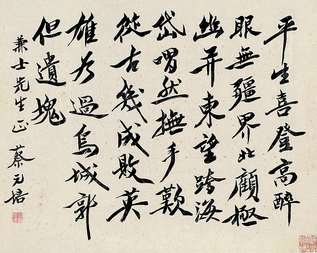 平生喜登高醉
眼無疆界北顧極
幽并東望跨海
岱喟然撫手歎
從古幾成敗英
雄如過鳥城郭
但遺塊
兼士先生正 蔡元培